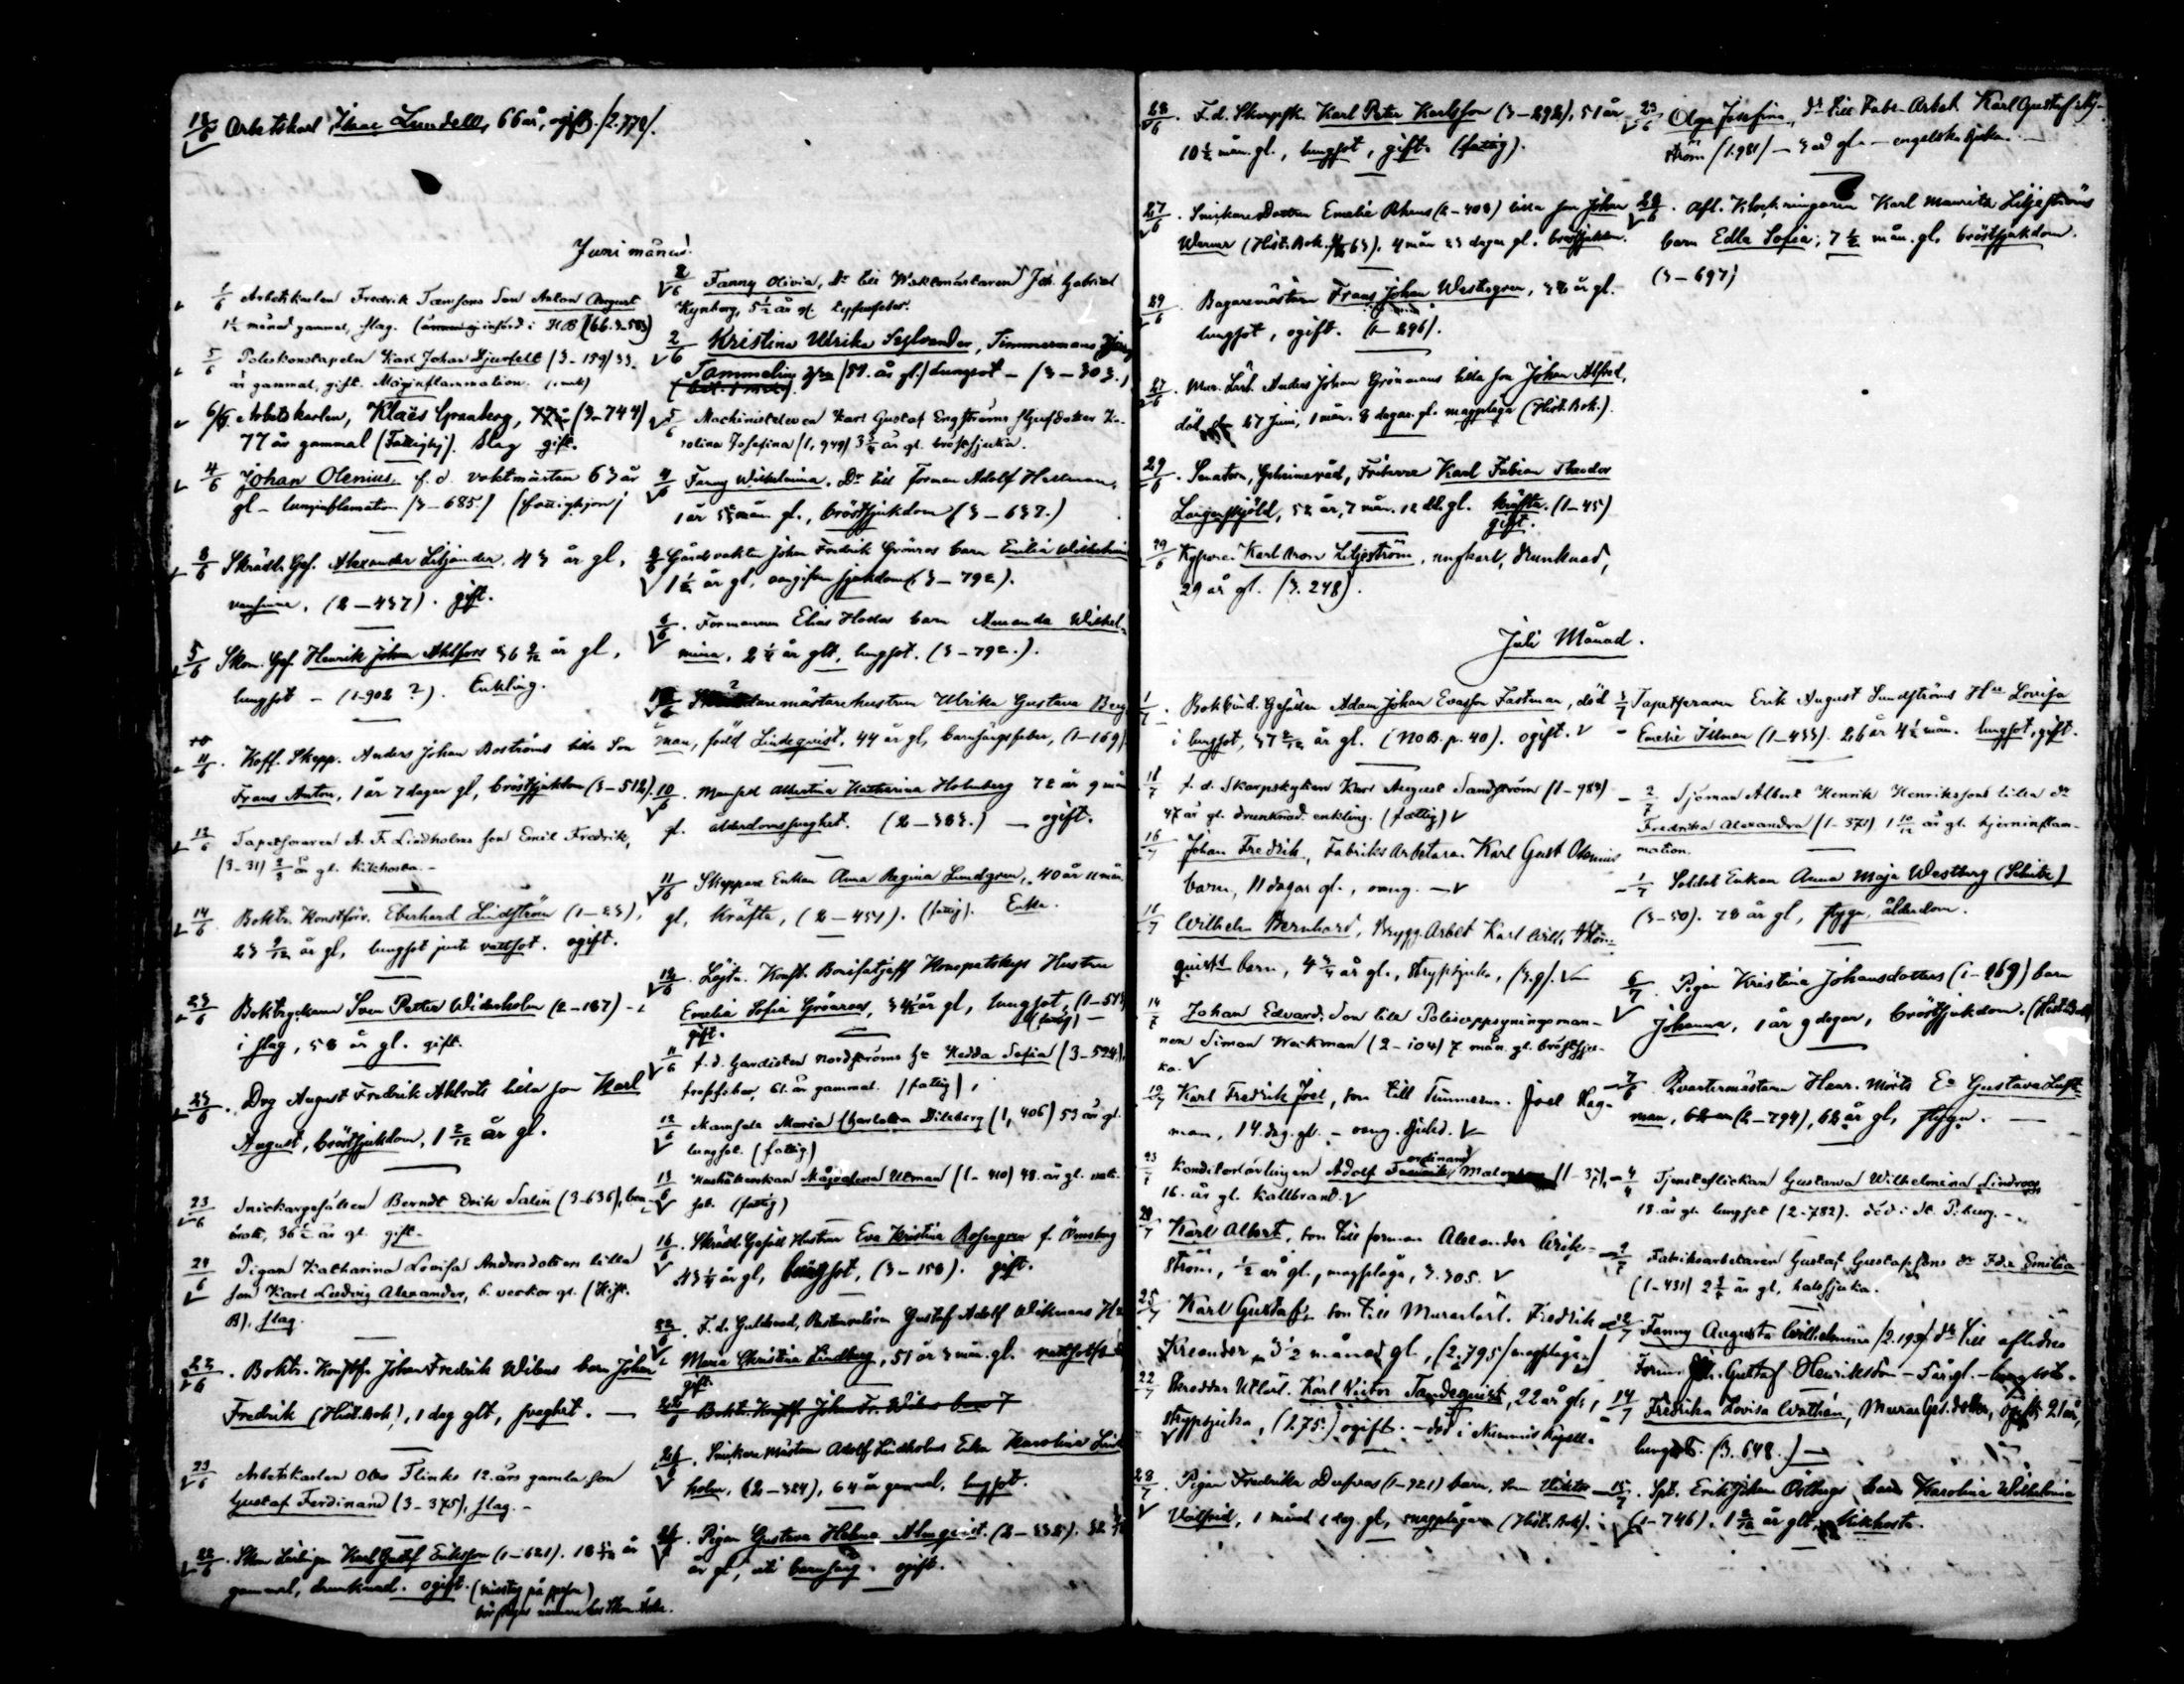 18/6 Arbetskarl Isaac Lundell, 66 år, ogift. /2.772/.
Juni månad.
1/6 Arbetskarlen Fredrik Tamsons Son Anton August
1½ månad gammal, slag. i H.B.
5/6 Poliskonstapeln Karl Johan Djurfelt (3-159) 33.
år gammal, gift. Maginflammation.
6/6. Arbetskarlen, Klaës Granberg, (3-744)
77 år gammal (Fattighj). Slag gift.
4/6 Johan Olenius, f. d. vaktmästen 63 år
gl - lunginflamation /3-685./ (fattighjon)
8/6 Skrädd. Ges. Alexander Liljander, 43 år gl,
(2-437). gift.
5/6 Skom. Ges. Henrik Johan Ahlfors 36 2/12 år gl,
lungsot - (1-902 ?). Enkling.
11/6. Koff. Skepp. Anders Johan Boströms lilla Son
Frans Anton, 1 år 7 dagar gl, bröstsjukdom (3-512).
12/6 Tapetseraren A. F. Lindholms son Emil Fredrik,
(3-31) år gl. kikhosta. -
14/6. Boktr. Konstförv. Eberhard Lindström (1-23),
23 9/12 år gl, lungsot jemte vattsot. ogift.
23/6 Sven Petter Widerholm (2-187) -
i slag, 58 år gl. gift.
23/6. Drg August Fredrik Ahlrots lilla son Karl
August, bröstsjukdom, 1 2/12 år gl.
23/6 Snickargesällen Berndt Erik Salin (3-636),
36½ år gl. gift.
24/6 Pigan Katharina Lovisa Andersdotters lilla
son Karl Ludvig Alexander, 6. veckor gl. (Hist.
B), slag.
23/6. Boktr. Konstf. Johan Fredrik Wibms barn Johan
Fredrik (Hist. Bok), 1 dag glt, svaghet. -
23/6 Arbetskarlen Olas Flinks 12. års gamla son
Gustaf Ferdinand (3-375), slag. -
22/6. Skom Lärlingen Karl Gustaf Eriksson (1-621). 18 år
gammal, drunknad. ogift. (misstag på person)
2/6 Fanny Olivia, Dr till Waktmästaren Joh. Gabriel
Nynberg, 5½ år gl.
2/6 Kristina Ulrika Sylvander, Timmermans
Tammelin (59. år gl.) Lungsot - (3-303.)
5/6 Machinisteleven Karl Gustaf Engströms
Josefina (1,949) 3¾ år gl. bröstsjuka.
4/6 Fanny Wilhelmina, Dr till forman Adolf Hellman,
1 år 5 mån. gl., bröstsjukdom (3-637.)
8/6 Gårdsvakten Johan Fredrik Grönros barn Emilia Wilhelmina
1½ år gl, oangifven sjukdom (3-792).
6/6. Formannen Elias Hodas barn Amanda Wilhel-
mina, 2¼ år glt, lungsot. (3-792.).
Ulrika Gustava Berg
man, född Lindeqvist, 44 år gl, barnsängsfeber, (1-169)
10/6. Mamsell Albertina Katharina Holmberg 72 år 9 mån
gl. ålderdomssvaghet. (2-383.) - ogift.
11/6 Skeppare Enkan Anna Regina Lundgren, 40 år 11 mån.
gl, kräfta, (2-451). (fattig). Enka.
12/6. Löjtn. Konst. Bonifatjeff Konopatskys Hustru
Emelia Sofia Grönroos, 34½ år gl, lungsot, (1-513)
gift. (fattig) -
11/6 f. d. Gardisten Nordströms he Hedda Sofia (3-524),
61. år gammal. (fattig),
12/6 Mamsell Maria Charlotta Dileberg (1,406) 53 år gl.
lungsot. (fattig)
13/6 Hushållerskan Magdalena Utman (1-410) 48. år gl.
(fattig)
16/6. Skrädd. Gesäll Hustrun Eva Kristina Rosengren f. Örnberg
43¼ år gl, lungsot, (3-158). gift.
22/6. F. d. Guldsmed, Gustaf Adolf Wikmans Hu
Maria Christina Lindberg, 51 år 3 mån. gl.
gift.
Boktr. Konstf. Johan Fr. Wibms barn
Snickare Mästaren Adolf Lindholms Enka Karolina Lind
holm, (2-324), 64 år gammal, lungsot.
Pigan Gustava Helena Almqvist, (2-332). 32
år gl, uti barnsäng. ogift.
28/6. F. d. Skarpsk. Karl Peter Karlsson (3-292), 51 år
10½ mån. gl., lungsot, gift. (fattig).
27/6. Snickare Dottren Emelia Rehns (2-408) lilla son Johan
Werner (Hist. Bok. 63). 4 mån 23 dagar gl. bröstsjukdom.
29/6. Bagaremästaren Frans Johan Westergren, 32 år gl.
lungsot, ogift. (1-296).
27/6. Mur. Lärl. Anders Johan Grönmans lilla son Johan Alfred,
död den 27 Juni, 1 mån. 8 dagar. gl. magplåga (Hist. Bok.).
29/6. Senatorn, Geheimeråd, Friherre Karl Fabian Theodor
Langenskjöld, 52 år, 7 mån. 12 dd. gl. kräfta. (1-45)
gift.
29/6 Kypare Karl Aron Liljeström, ungkarl, drunknad,
29 år gl. (3.248).
23/6 Olga Josefina, dr till Fabr. Arbet. Karl Gustaf
ström (1.981) - 3 år gl. - engelska sjukan. -
28/6. Afl. Klockringaren Karl Mauritz Liljeströms
barn Edla Sofia, 7½ mån. gl. bröstsjukdom.
(3-697)
Juli Månad.
1/7. Bokbind. Gesällen Adam Johan Evasson Fastman, död
i lungsot, 37 2/12 år gl. (No B. p. 40). ogift.
18/7 f. d. Skarpskytten Karl August Sandström (1-983)
47 år gl. drunknad. enkling. (fattig)
16/7 Johan Fredrik, Fabriks Arbetare Karl Gust Olenius
barn, 11 dagar gl., oang. -
16/7 Wilhelm Bernhard, Brygg. Arbet Karl Wilh.
quists barn, 4¾ år gl., strypsjuka, (3.9).
14/7 Johan Edvard, Son till Polisuppsyningsman-
nen Simon Weckman (2-104) 7 mån. gl. bröstsju-
ka.
19/7 Karl Fredrik Joel, son till Timmerm. Joel Hag-
man, 14. dag. gl. - oang. sjukd.
23/7 Konditorlärlingen Adolf Ferdinand
16. år gl. Kallbrand.
Karl Albert, son till forman Alexander Erik-
ström, ½ år gl., magplåga, 3.305.
25/7 Karl Gustaf, son till Murarlärl. Fredrik
Kreander, 3½ månad gl, (2.795/magplåga)
22/7 Skräddar Utlärl. Karl Victor Tandeqvist, 22 år gl,
strypsjuka, (1.75.) ogift. - död i Nummis Kapell.
28/7. Pigan Fredrika Dufvas (1-721) barn, son Viktor
Valfrid, 1 månad 1 dag. gl, magplåga (Hist. Bok).
3/7 Tapetseraren Erik August Sundströms Hu Lovisa
Emelie Ilman (1-433). 26 år 4½ mån. lungsot, gift.
2/7 Sjöman Albert Henrik Henrikssons lilla dr
Fredrika Alexandra (1-371) 1 10/12 år gl. hjerninflam-
mation.
1/7 Soldat Enkan Anna Maja Westberg
(3-50). 78 år gl, ålderdom.
6/7. Pigan Kristina Johansdotters (1-269) barn
Johanna, 1 år 9 dagar, bröstsjukdom. (Hist. Bok)
Qvartermästaren Henr. Mörts Ea Gustava Luft-
man, (2-794), 62 år gl, -
Tjensteflickan Gustava Wilhelmina Lindroos
18. år gl. lungsot (2-782). död i St. P:burg. -
Fabriksarbetaren Gustaf Gustafssons dr Ida Emilia
(1-431) 2 år gl, halssjuka.
Fanny Augusta Wilhelmina /2.193/ dr till aflidne
Form. Gustaf Henriksson - 5 år gl. -
14/7 Fredrika Lovisa Wathén, Murar Ges. dotter, ogift, 21 år,
lungsot. (3.648.) -
15/7. Spb. Erik Johan Östbergs barn Karolina Wilhelmina
(1-746), 1 år glt, kikhosta.